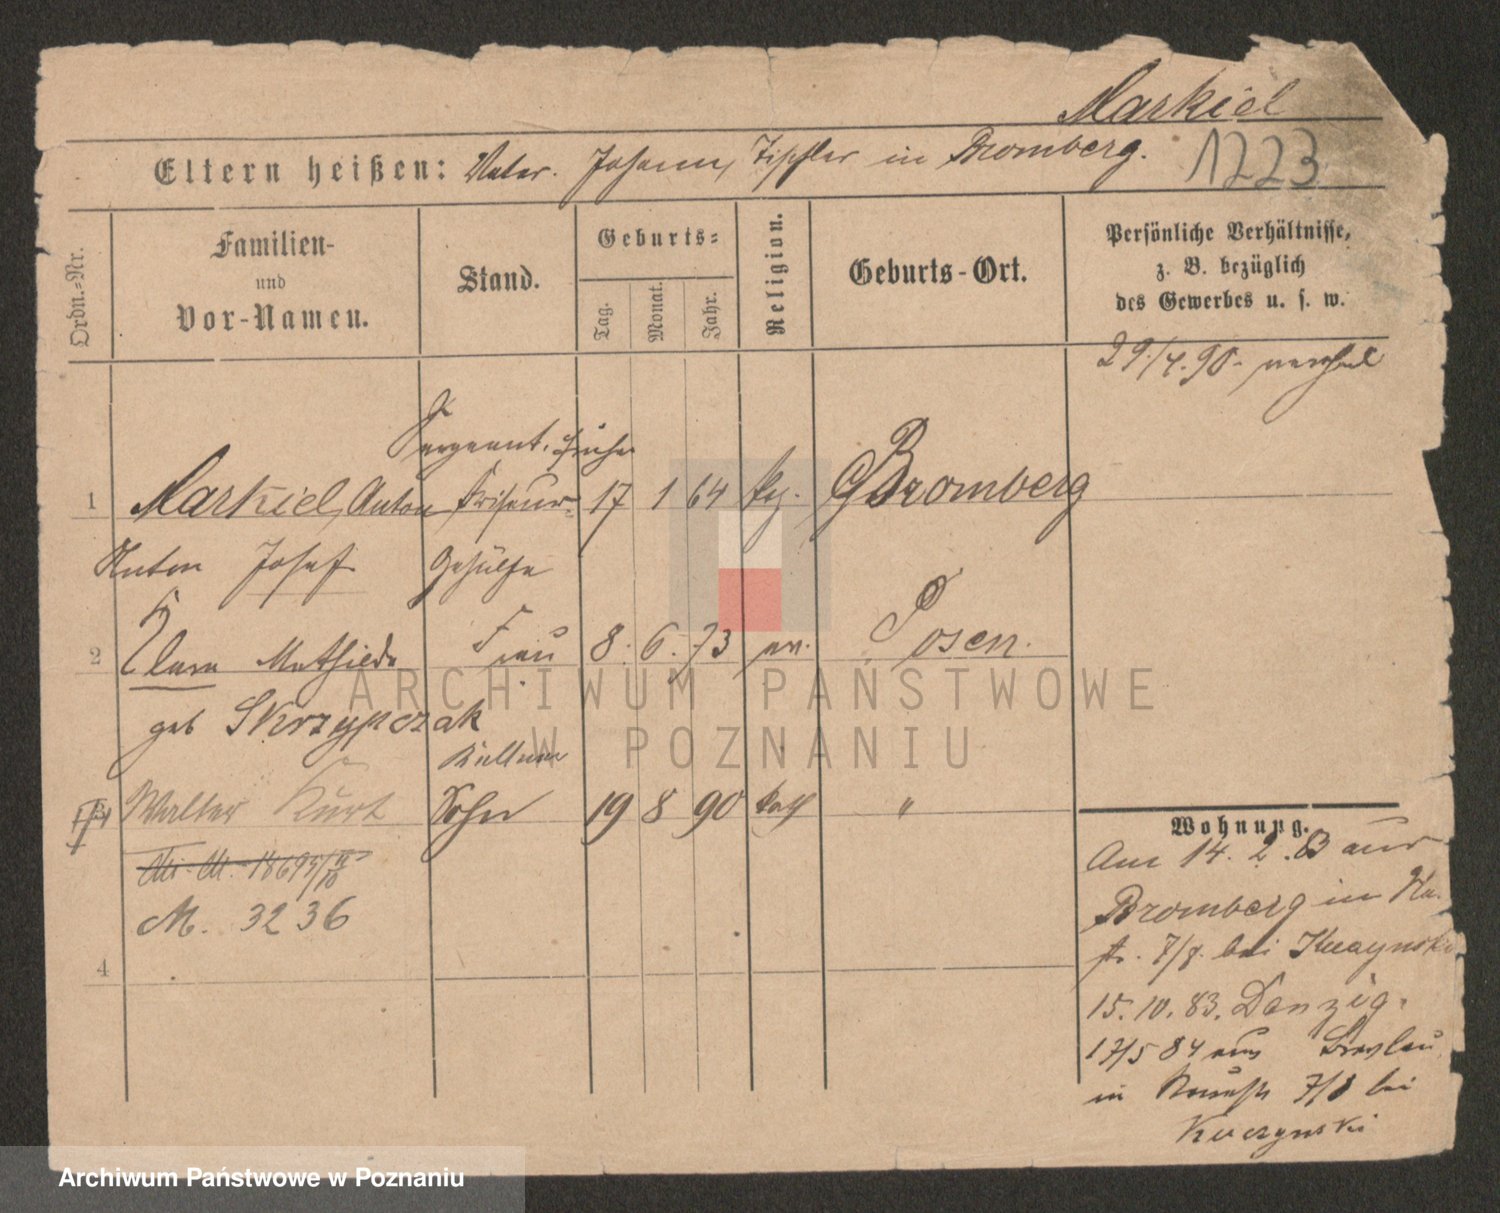 Markiel
Eltern heißen: Vater. Johann, Tischler in Bromberg. 1223
Ordn.-Nr.
Familien-
und
Vor-Namen.
Stand.
Geburts-
Tag.
Monat.
Jahr.
Religion.
Geburts-Ort.
Persönliche Verhältnisse,
z. B. bezüglich
des Gewerbes u. s. w.
29./4.90.
Sergeant. früher
1 Markiel, Anton Friseur- 17 1 64 Bromberg
Anton Josef Gehülfe
2 Clara Mathilde Frau 8. 6. 73 ev. Posen.
geb Skrzypczak
Walter Kurt Sohn 19 8 90 kath "
M. 3236
4
Wohnung.
Am 14. 2. 83 aus
Bromberg in
str. 7/8. bei
15. 10. 83. Danzig.
17/5 84 aus Breslau
in 7/8 bei
Kuczynski
ARCHIWUM PAŃSTWOWE
W POZNANIU
Archiwum Państwowe w Poznaniu